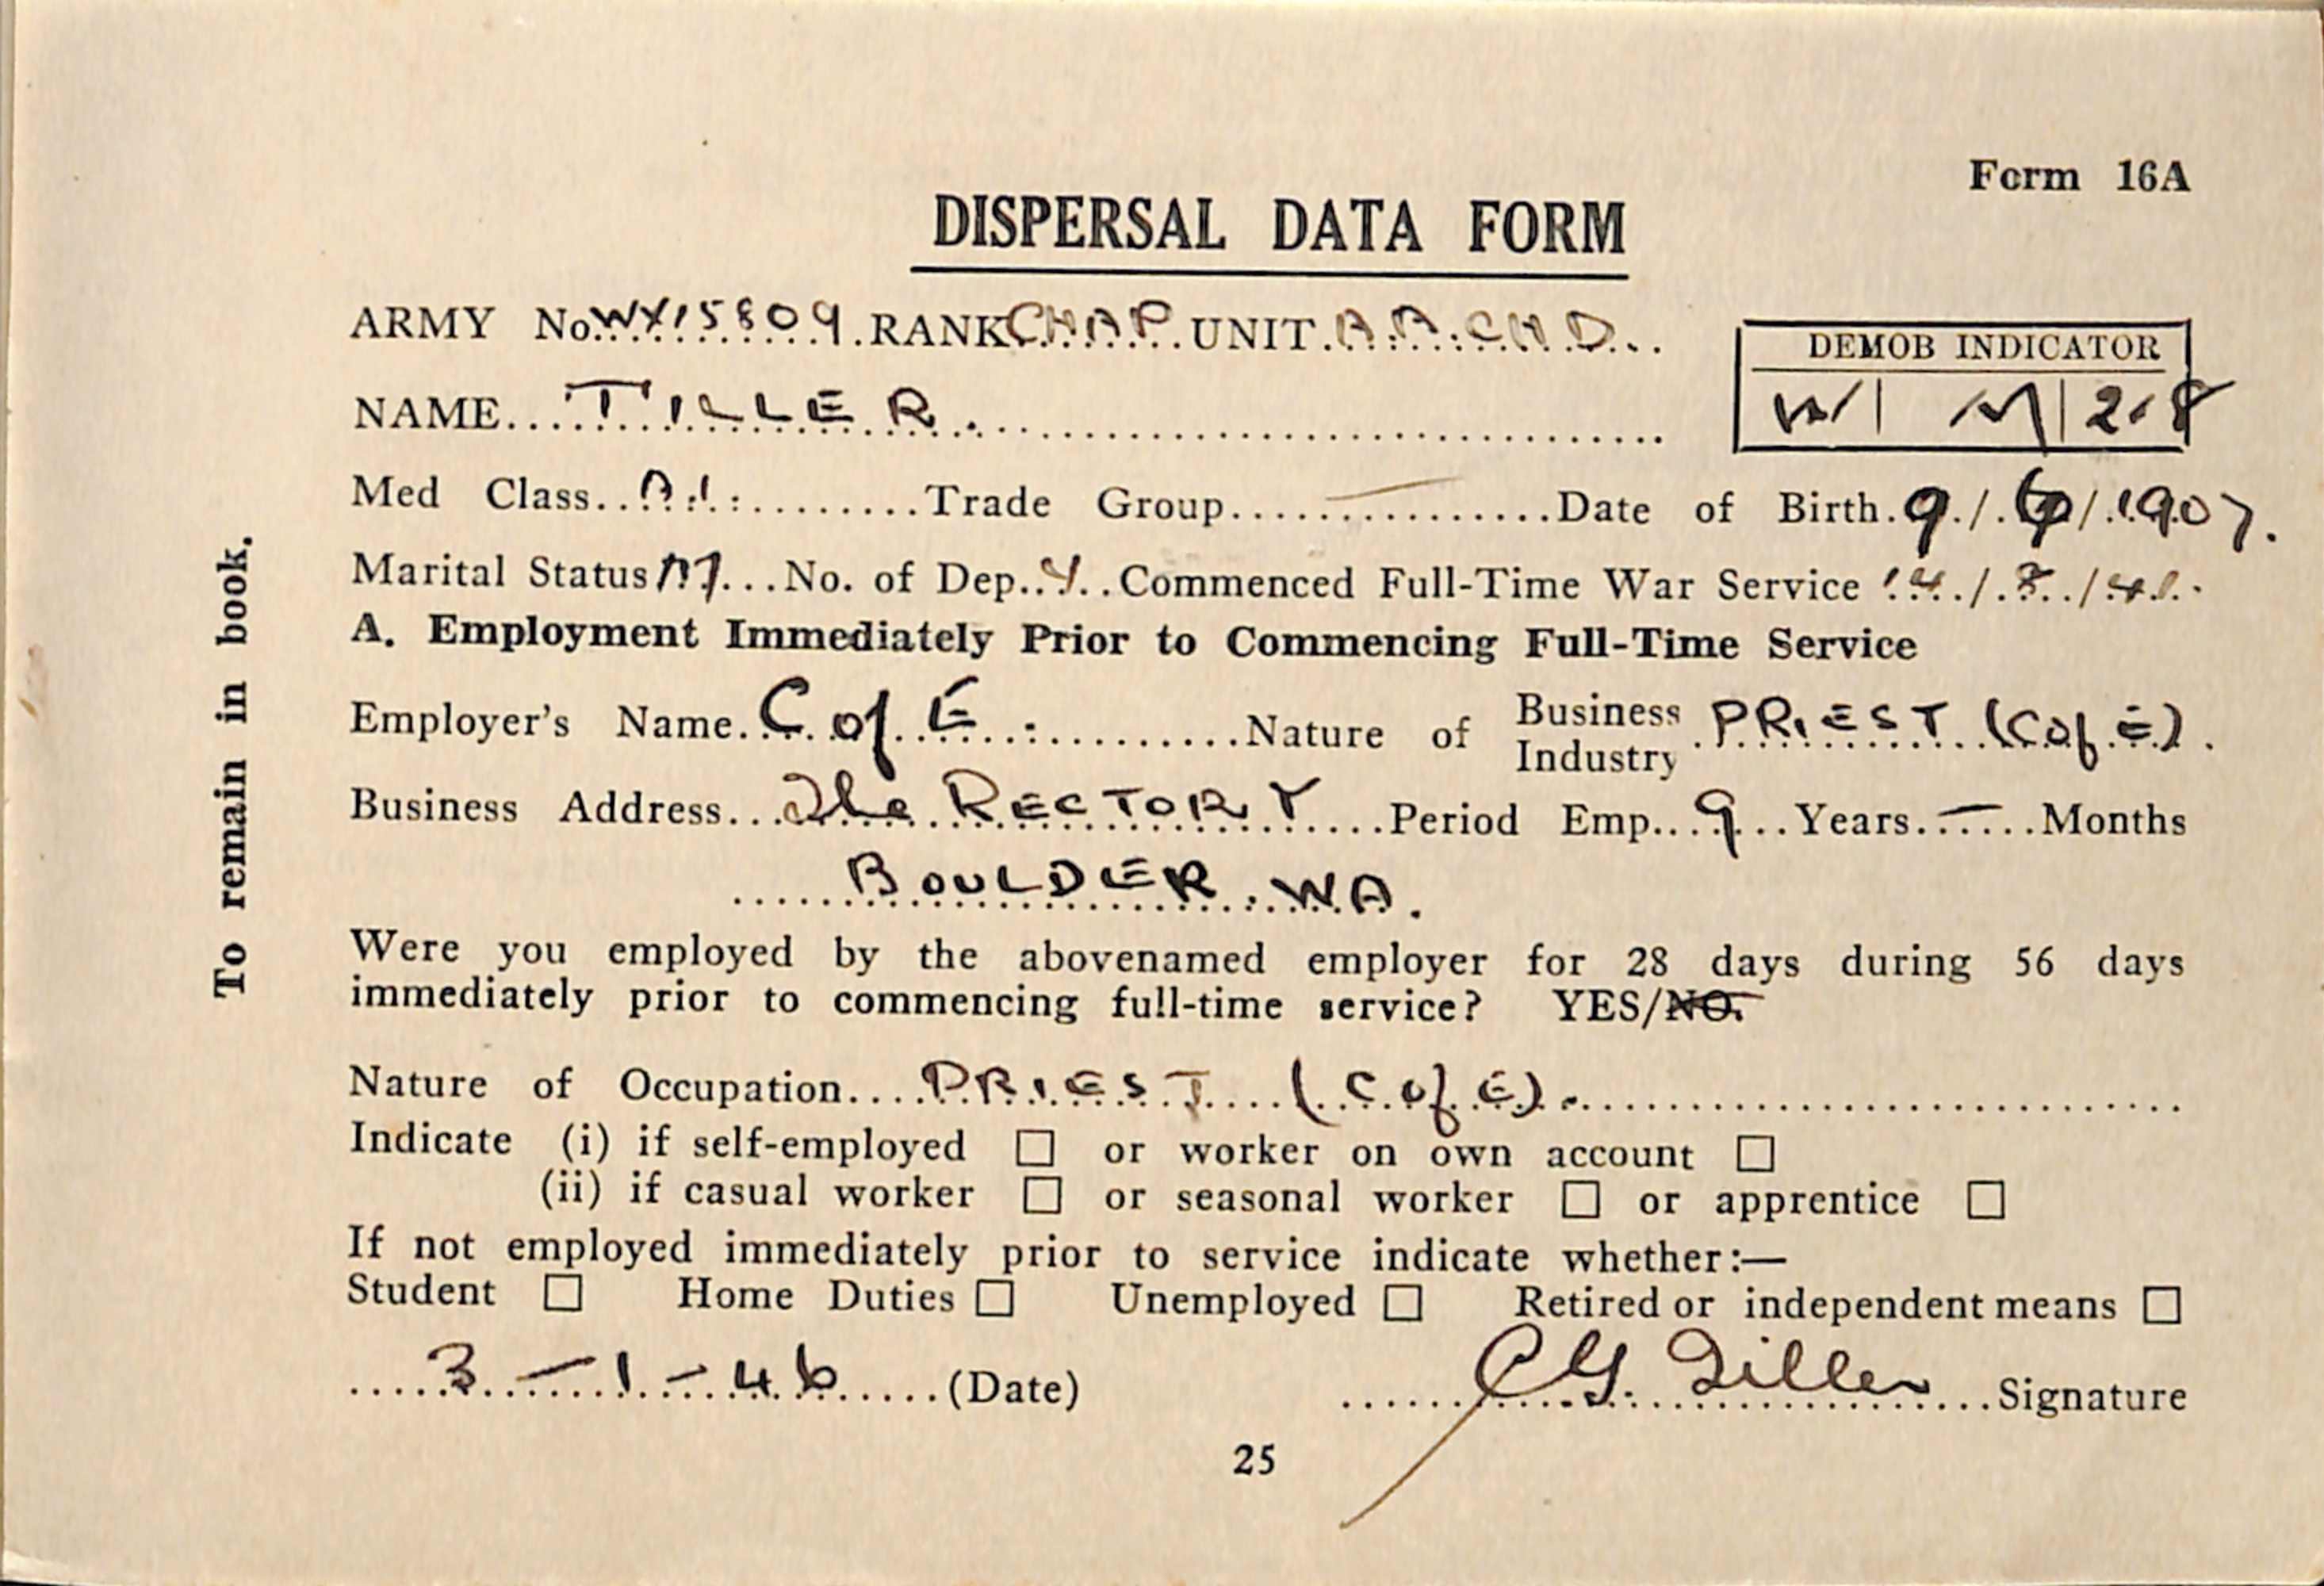 Form 16A
DISPERSAL DATA FORM
ARMY No. WX15809. RANK CHAP. UNIT. A.A.CH.D...
DEMOB INDICATOR
W | M | 218
NAME.... TILLER.
Med Class.. A1. Trade Group.... — ....Date of Birth. 9./.6/.1907.
Marital Status M...No. of Dep..4..Commenced Full-Time War Service 14./.8./41.
A. Employment Immediately Prior to Commencing Full-Time Service
Employer's Name. C. of E. Nature of Business Industry PRIEST (C of E).
Business Address... The RECTORY ....Period Emp... 9 ...Years. — ...Months
BOULDER. W.A.
Were you employed by the abovenamed employer for 28 days during 56 days
immediately prior to commencing full-time service? YES/NO.
Nature of Occupation.... PRIEST (C of E).
Indicate (i) if self-employed □ or worker on own account □
(ii) if casual worker □ or seasonal worker □ or apprentice □
If not employed immediately prior to service indicate whether:—
Student □ Home Duties □ Unemployed □ Retired or independent means □
3 — 1 — 46 (Date) Tiller Signature
25
To remain in book.